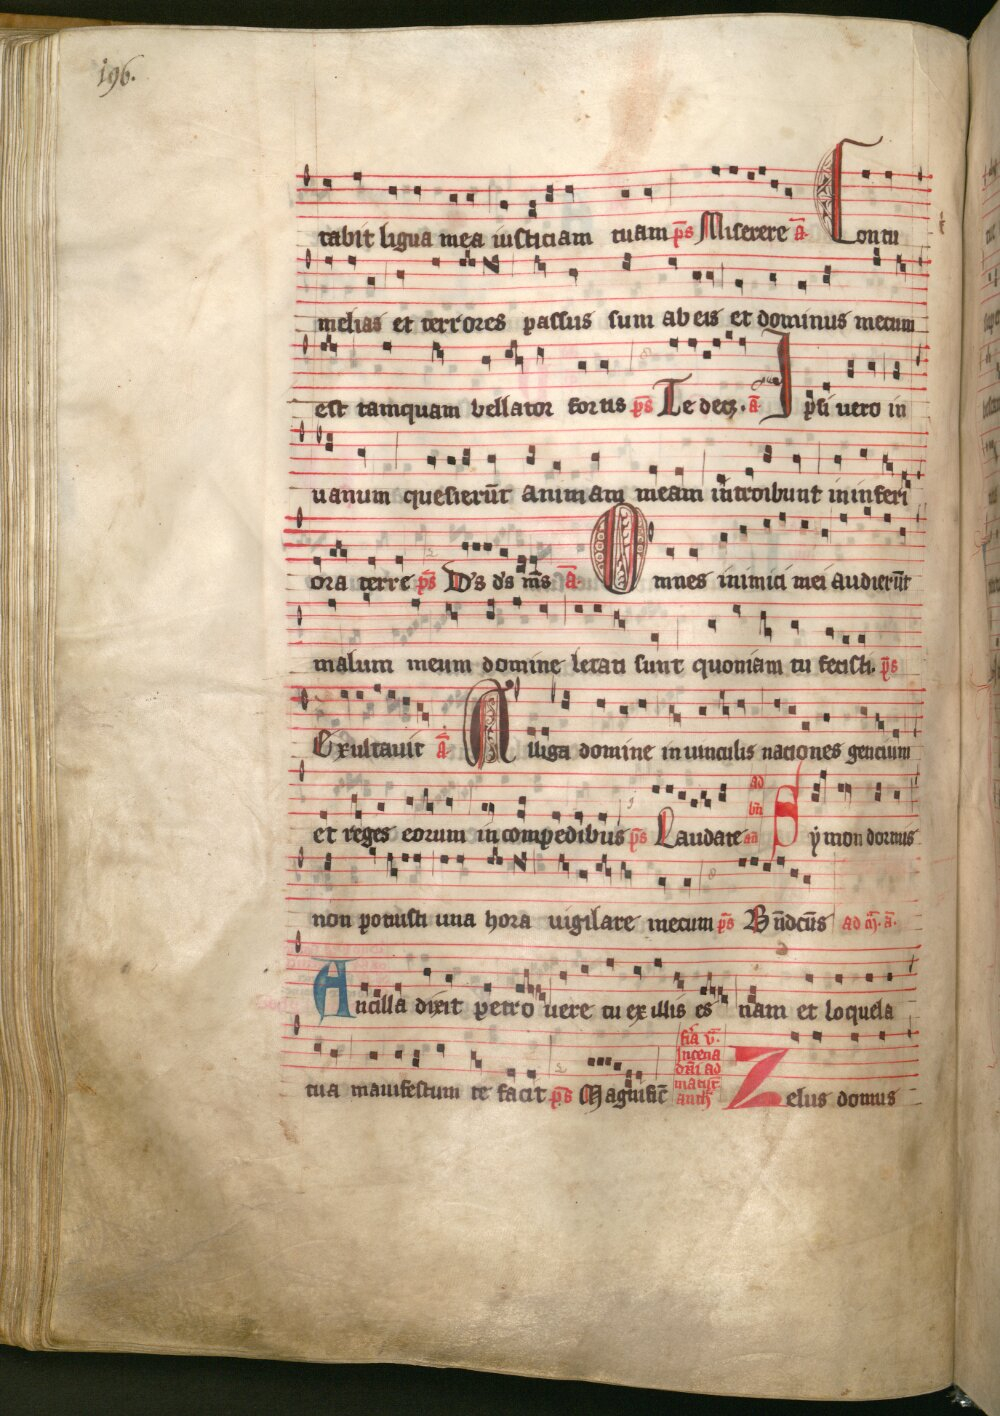 196.
tabit ligua mea iusticiam tuam ps Miserere a Contu
melias et terrores passus sum ab eis et dominus mecum
est tamquam bellator fortis ps Te decz. a Ipsi uero in
uanum quesierūt animam meam introibunt in inferi
ora terre ps D's d's m̄s a Omnes inimici mei audierūt
malum meum domine letati sunt quoniam tu fecisti. ps
Exultauit a Alliga domine in uinculis naciones gencium
et reges eorum in compedibus ps Laudate ad bn̄ an Symon dormis
non potuisti una hora uigilare mecum ps Bn̄dcūs ad m̄. a.
Ancilla dixit petro uere tu ex illis es nam et loquela
tua manifestum te facit ps Magnific̄ fia v. In cena dn̄i ad matut̄ anth Zelus domus